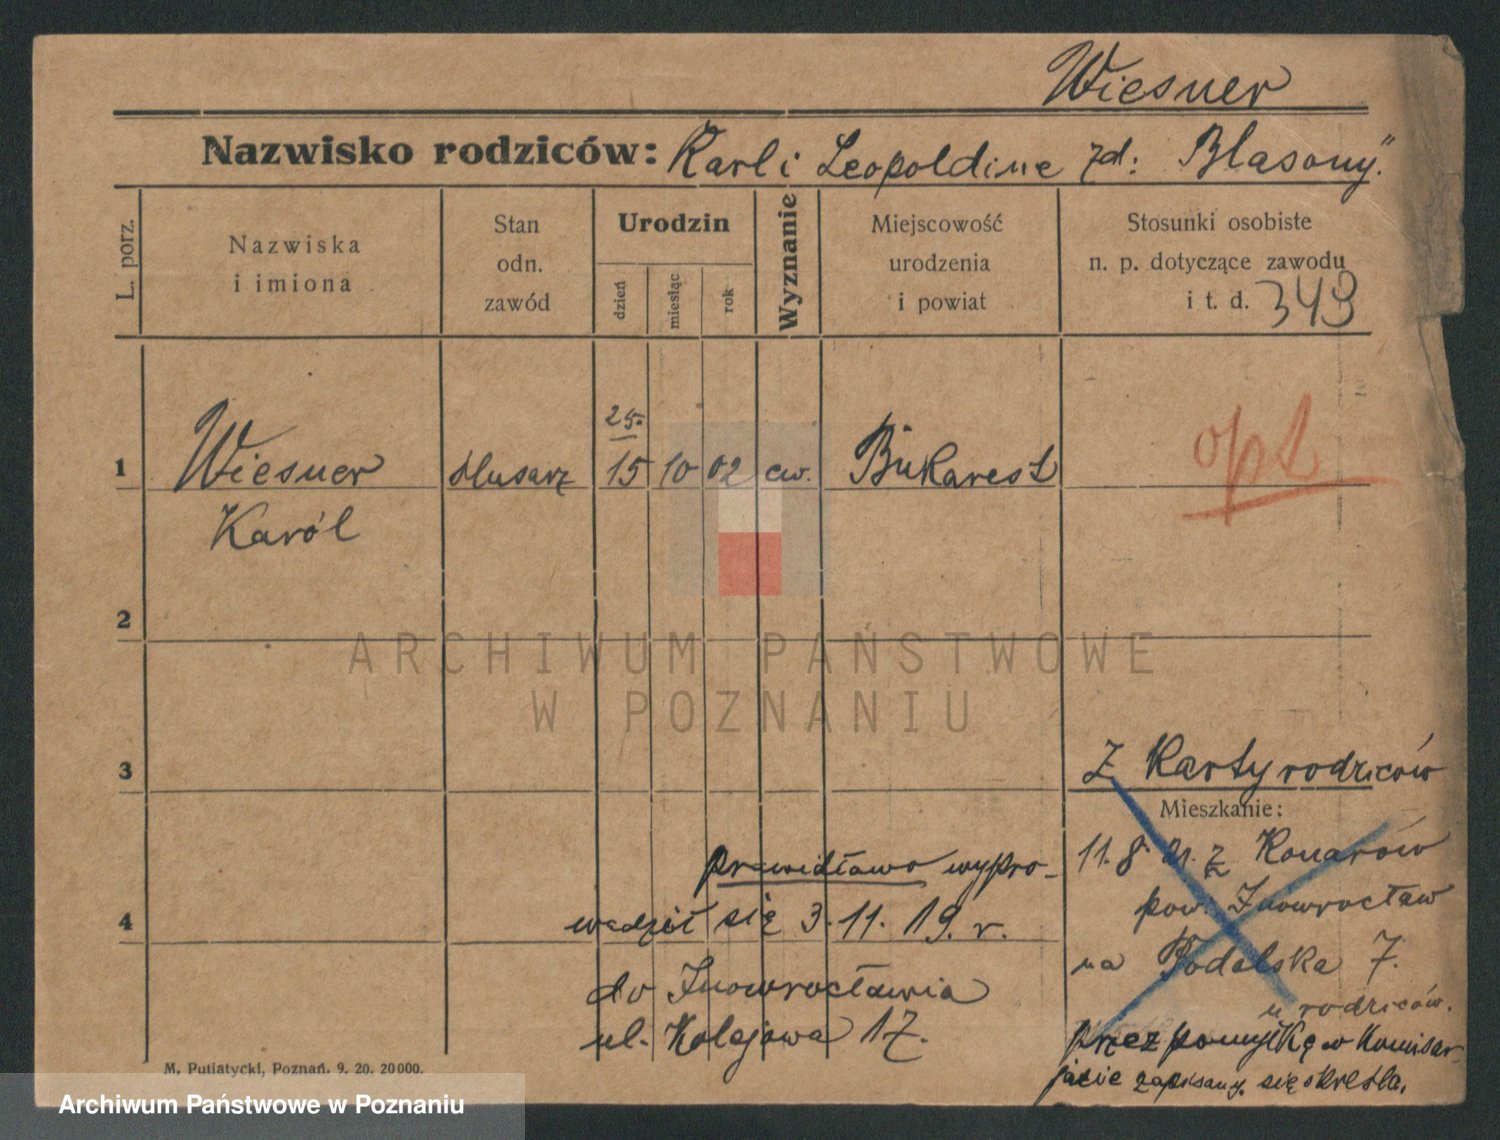 Wiesner
Nazwisko rodziców: Karl i Leopoldine zd: Blasony"
L. porz.
Nazwiska
i imiona
Stan
odn.
zawód
Urodzin
dzień
miesiąc
rok
Wyznanie
Miejscowość
urodzenia
i powiat
Stosunki osobiste
n. p. dotyczące zawodu
i t. d. 349
25.
1 Wiesner ślusarz 15 10 02 ew. Bukarest opt
Karól
2
ARCHIWUM PAŃSTWOWE
W POZNANIU
3
Z Karty rodziców
Mieszkanie:
11. 8. 21. z Konarów
pow. Inowrocław
na Podolska 7.
u rodziców.
przez pomyłkę w Komisar-
jacie zapisany. się skreśla.
4
prawidłowo wypro-
wadził się 3. 11. 19. r.
do Inowrocławia
ul. Kolejowa 17.
M. Putiatycki, Poznań. 9. 20. 20000.
Archiwum Państwowe w Poznaniu